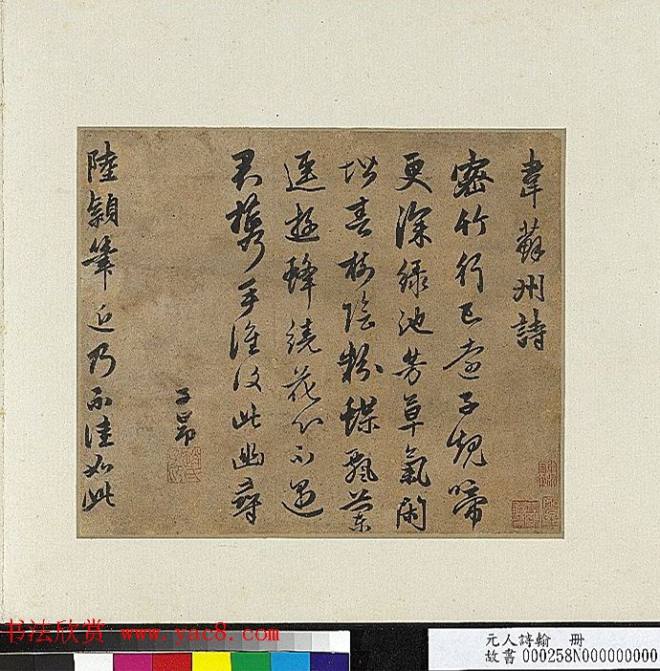 韋蘇州詩
密竹行已遠子規啼
更深綠池芳草氣閑
堦春樹陰粉蝶飄蘭
逕遊蜂繞花心不遇
君攜手誰復此幽尋
子昂
陸穎筆近乃不佳如此
书法欣赏 www.yac8.com
元人詩翰 冊
故書 000258N000000000